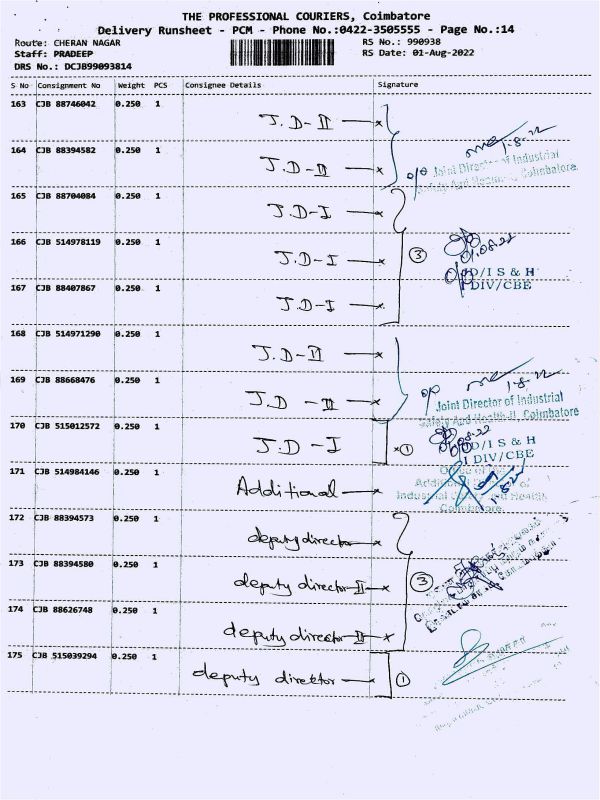 THE PROFESSIONAL COURIERS, Coimbatore
Delivery Runsheet - PCM - Phone No.:0422-3505555 - Page No.:14
Route: CHERAN NAGAR RS No.: 990938
Staff: PRADEEP RS Date: 01-Aug-2022
DRS No.: DCJB99093814
S No Consignment No Weight PCS Consignee Details Signature
163 CJB 88746042 0.250 1
J.D-II x
1-8-22
164 CJB 88394582 0.250 1
J.D-II x
o/o Joint Director of Industrial
Safety And Coimbatore.
165 CJB 88704084 0.250 1
J.D-I x
166 CJB 514978119 0.250 1
J.D-I x ③
01.08.22
O/D/I S & H
I DIV/CBE
167 CJB 88407867 0.250 1
J.D-I x
168 CJB 514971290 0.250 1
J.D-II x
169 CJB 88668476 0.250 1
J.D-II x
o/o 1-8-22
Joint Director of Industrial
Safety And Health-II, Coimbatore
170 CJB 515012572 0.250 1
J.D-I x①
D/I S & H
I DIV/CBE
171 CJB 514984146 0.250 1
Additional x
Office of the
Additional of
Industrial Safety and Health
Coimbatore.
172 CJB 88394573 0.250 1
deputy director x
173 CJB 88394580 0.250 1
deputy director II x ③
174 CJB 88626748 0.250 1
deputy director II x
175 CJB 515039294 0.250 1
deputy director x ①